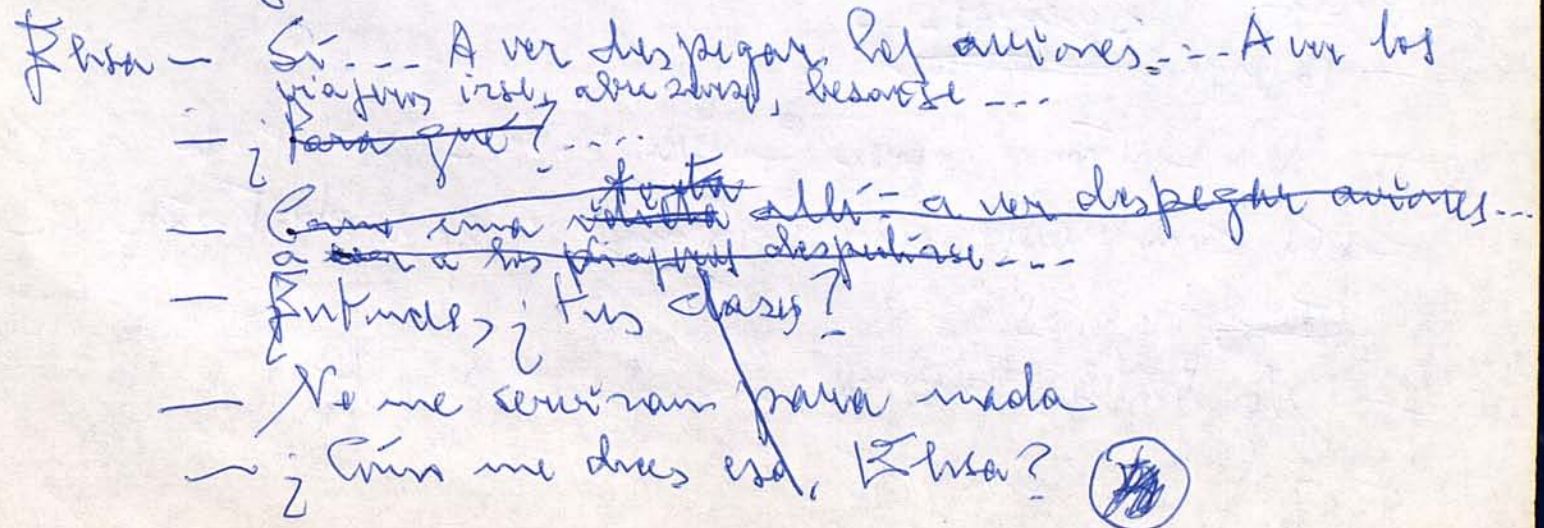 Elisa — Sí.... A ver despegar los aviones.... A ver los
viajeros irse, abrazarse, besarse ...
— ¿Para qué?....
tonta
— Como una allí - a ver despegar aviones...
a ver a los viajeros despedirse....
— Entonces, ¿tus clases?
— No me servirán para nada
— ¿Cómo me dices eso, Elisa?